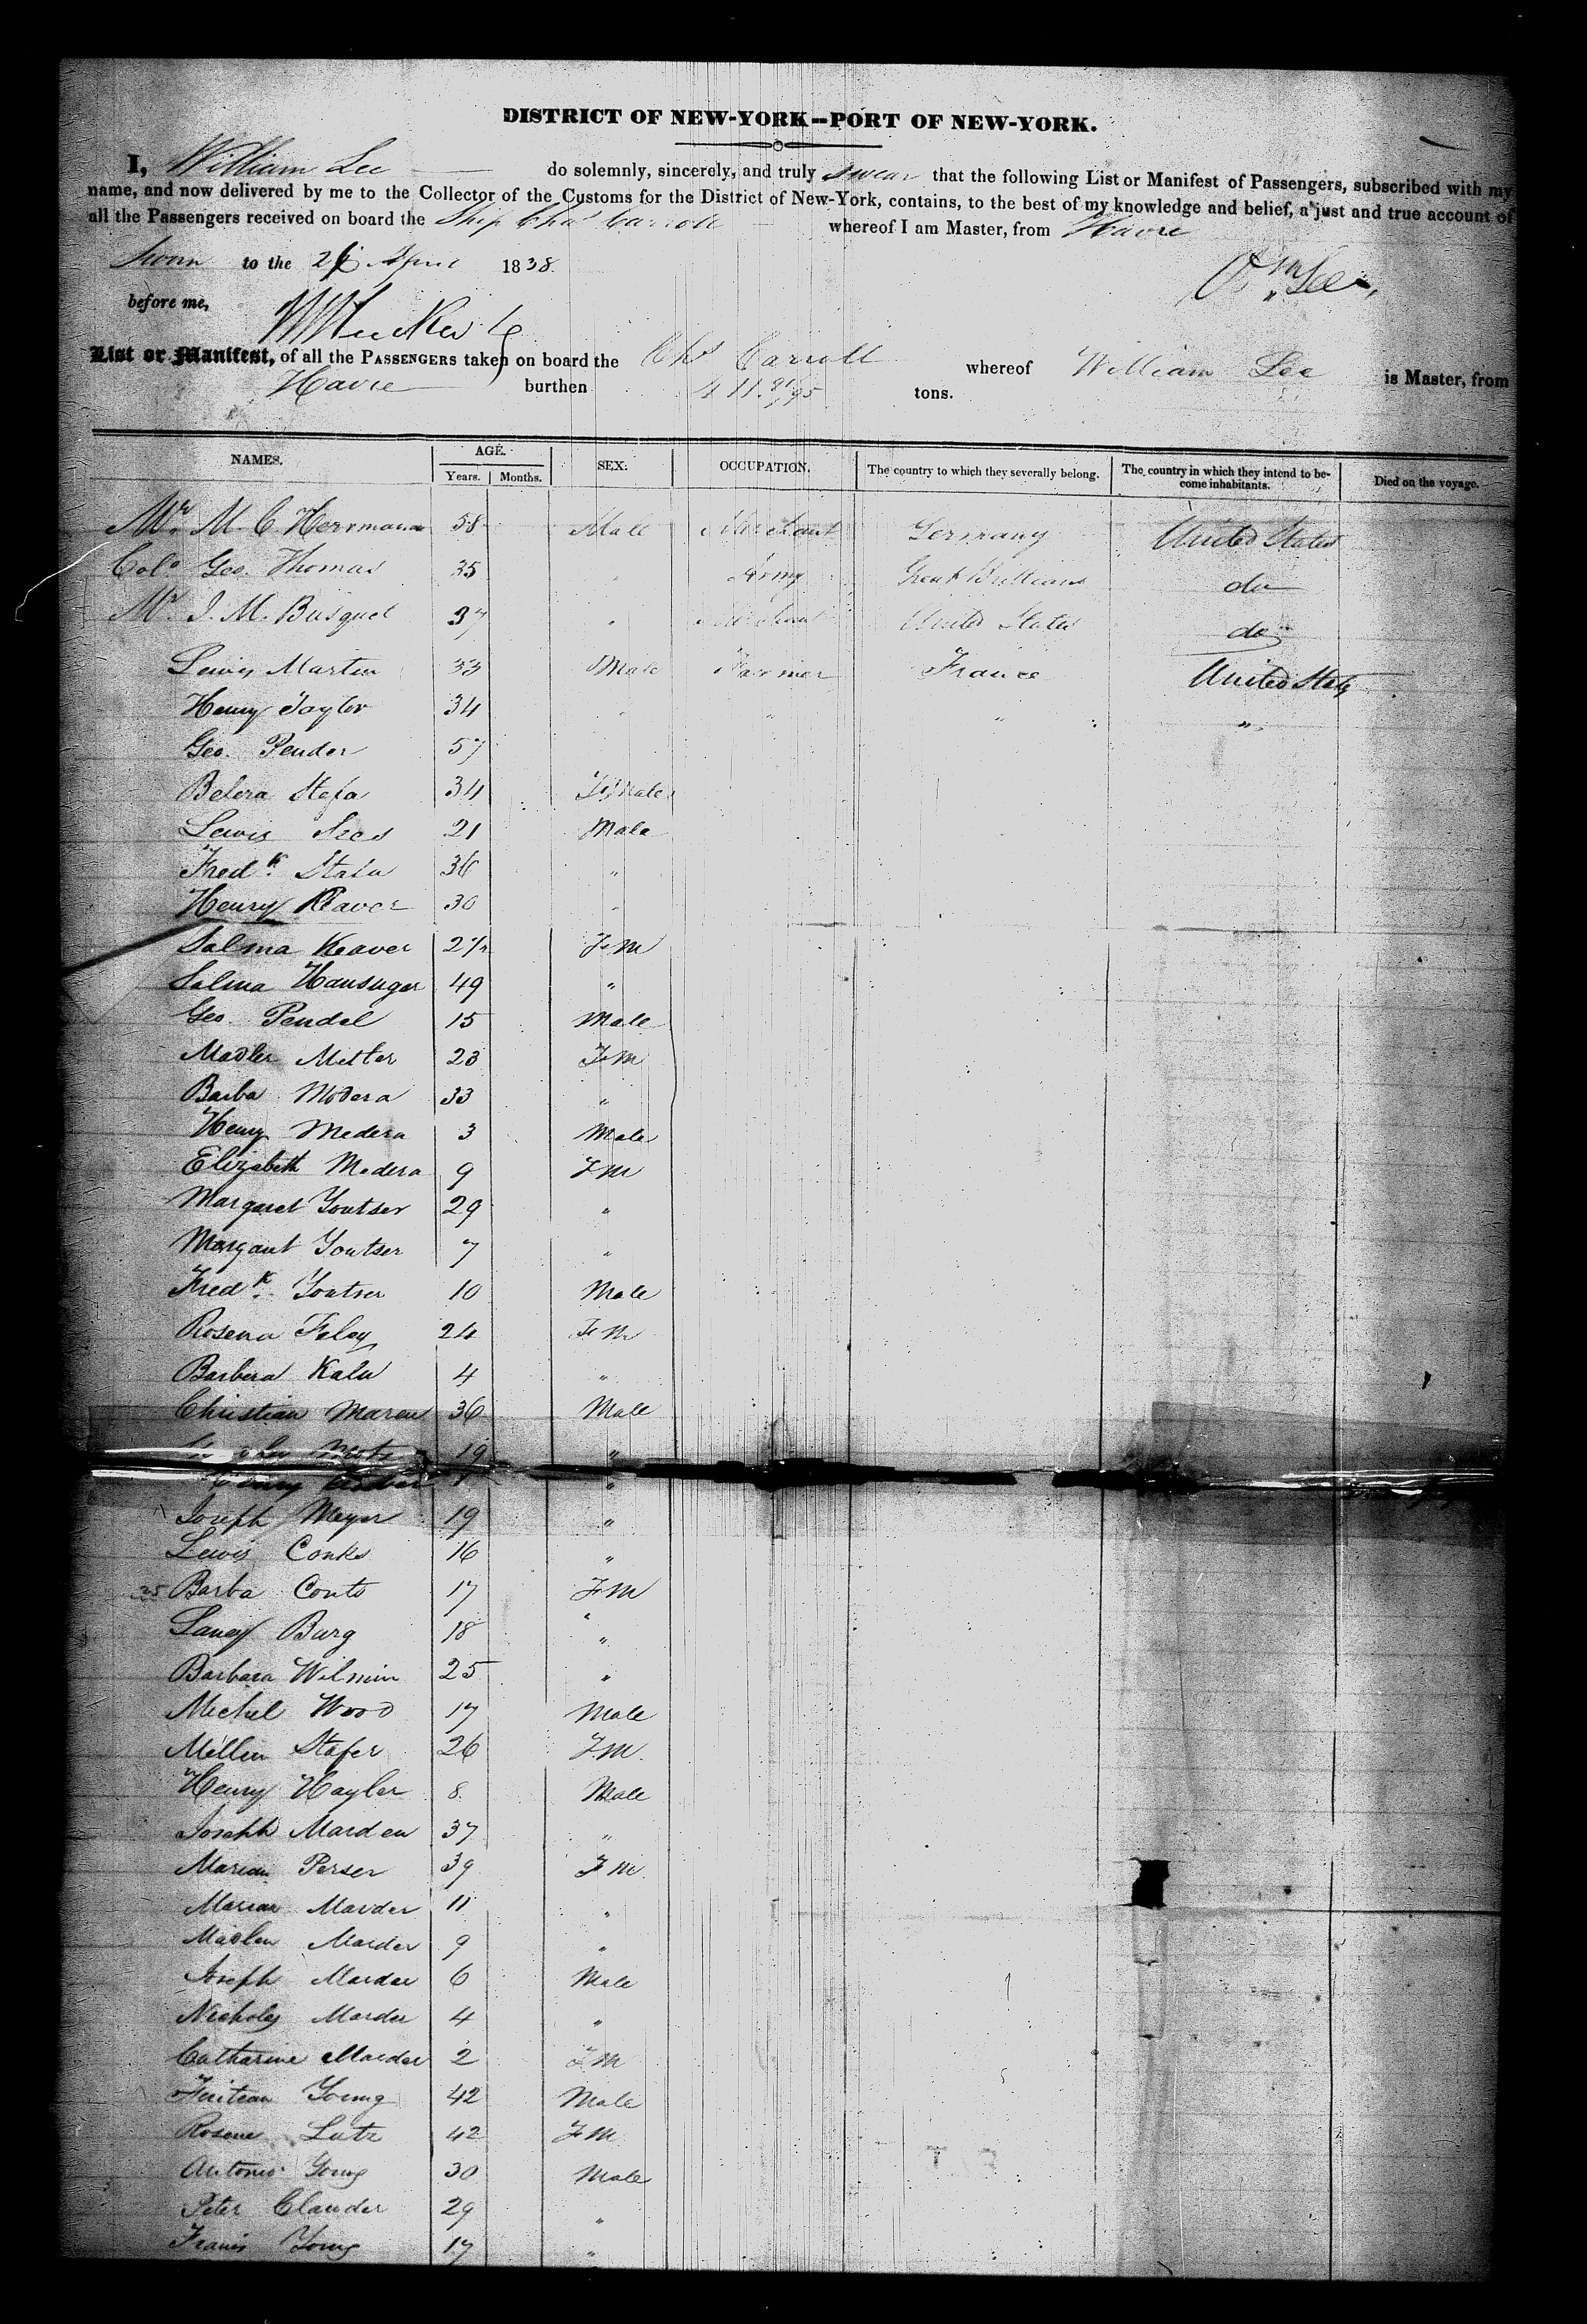 DISTRICT OF NEW-YORK—PORT OF NEW-YORK.
I, William Lee do solemnly, sincerely, and truly swear that the following List or Manifest of Passengers, subscribed with my
name, and now delivered by me to the Collector of the Customs for the District of New-York, contains, to the best of my knowledge and belief, a just and true account of
all the Passengers received on board the Ship Chas Carroll whereof I am Master, from Havre
Sworn to the April 1838. Wm Lee
before me,
List or Manifest, of all the PASSENGERS taken on board the Chs Carroll whereof William Lee is Master, from
Havre burthen 411 91/95 tons.
NAMES. AGE. SEX. OCCUPATION. The country to which they severally belong. The country in which they intend to become inhabitants. Died on the voyage.
Years. Months.
Mr. M. C. Herrmann 58 Male Merchant Germany United States
Colo Geo. Thomas 35 " Army Great do
Mr. J. M. Busquet 37 " Merchant United States do
Lewis Martin 33 Male Farmer France United States
Henry Taylor 34 " " " "
Geo. Pender 57
Belera Stafa 34 Female
Lewis 21 Male
Fredk. Stalu 36 "
Henry Keaver 30 "
Salma Keaver Fe M
Salma Hausuger 49 "
Geo. Pendel 15 Male
Madler Miller 23 Fe M
Barba Modera 33 "
Henry Medera 3 Male
Elizabeth Madera 9 F M
Margaret Youtser 29 "
Margaret Youtser 7 "
Fredk. Youtser 10 Male
Rosena Foley 24 Fe M
Barbera Kalu 4 "
Christian Maren 36 Male
19 "
Henry "
Joseph Meyer 19 "
Lewis Conks 16 "
25 Barba Conts 17 F M
Laney Burg 18 "
Barbara Wilmin 25 "
Michel Wood 17 Male
Millen Stafer 26 F M
Henry Hayler 8 Male
Joseph Marden 37 "
Marian Perser 39 F M
Marian Marder 11 "
Madlen Marder 9 "
Joseph Marder 6 Male
Nicholas Marder 4 "
Catharine Marder 2 F M
Young 42 Male
Rosene Lutz 42 F M
Antonio Young 30 Male
Peter Clauder 29 "
Francis Young 17 "